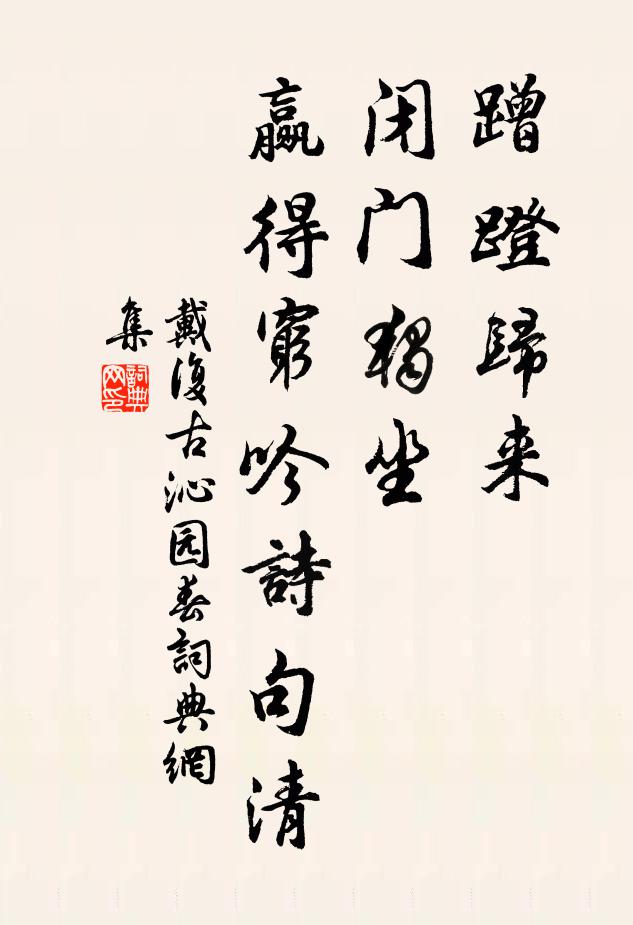 蹭蹬歸来
闭门獨坐
贏得窮吟詩句清
戴復古沁园春詞典網
集
詞典
网印